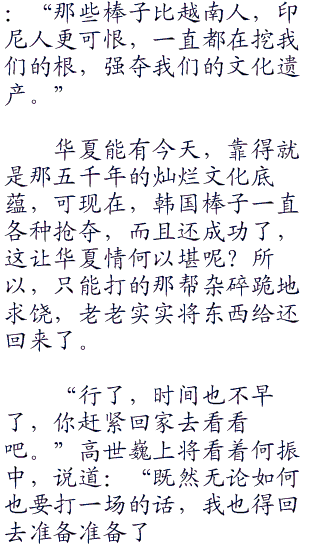 ：“那些棒子比越南人，印
尼人更可恨，一直都在挖我
们的根，强夺我们的文化遗
产。”
华夏能有今天，靠得就
是那五千年的灿烂文化底
蕴，可现在，韩国棒子一直
各种抢夺，而且还成功了，
这让华夏情何以堪呢？所
以，只能打的那帮杂碎跪地
求饶，老老实实将东西给还
回来了。
“行了，时间也不早
了，你赶紧回家去看看
吧。”高世巍上将看着何振
中，说道：“既然无论如何
也要打一场的话，我也得回
去准备准备了